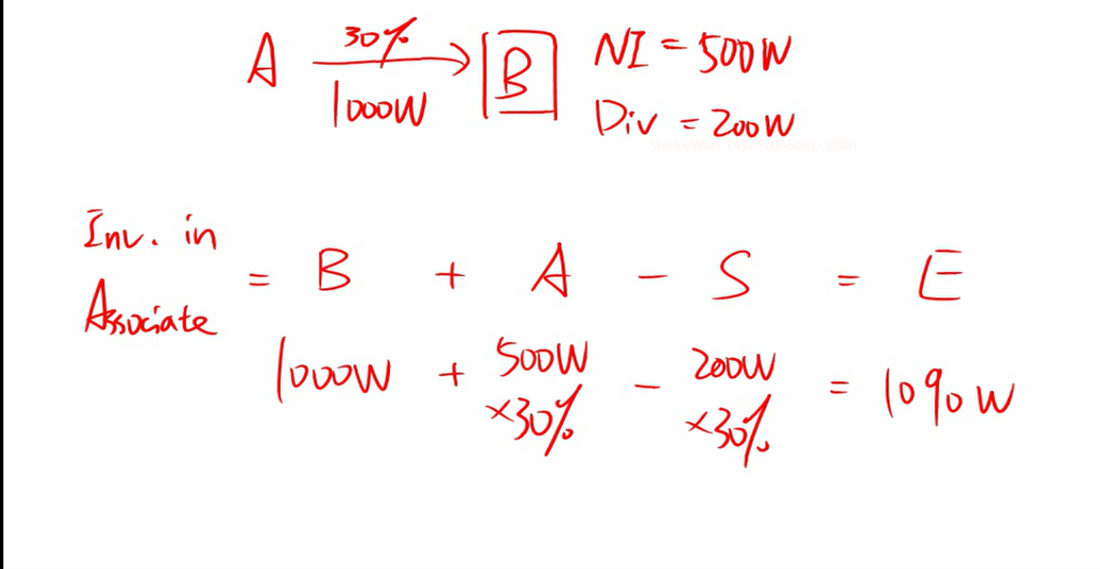 A 30% B NI = 500W
1000W Div = 200W
Inv. in
Associate = B + A - S = E
1000W + 500W - 200W = 1090W
×30% ×30%